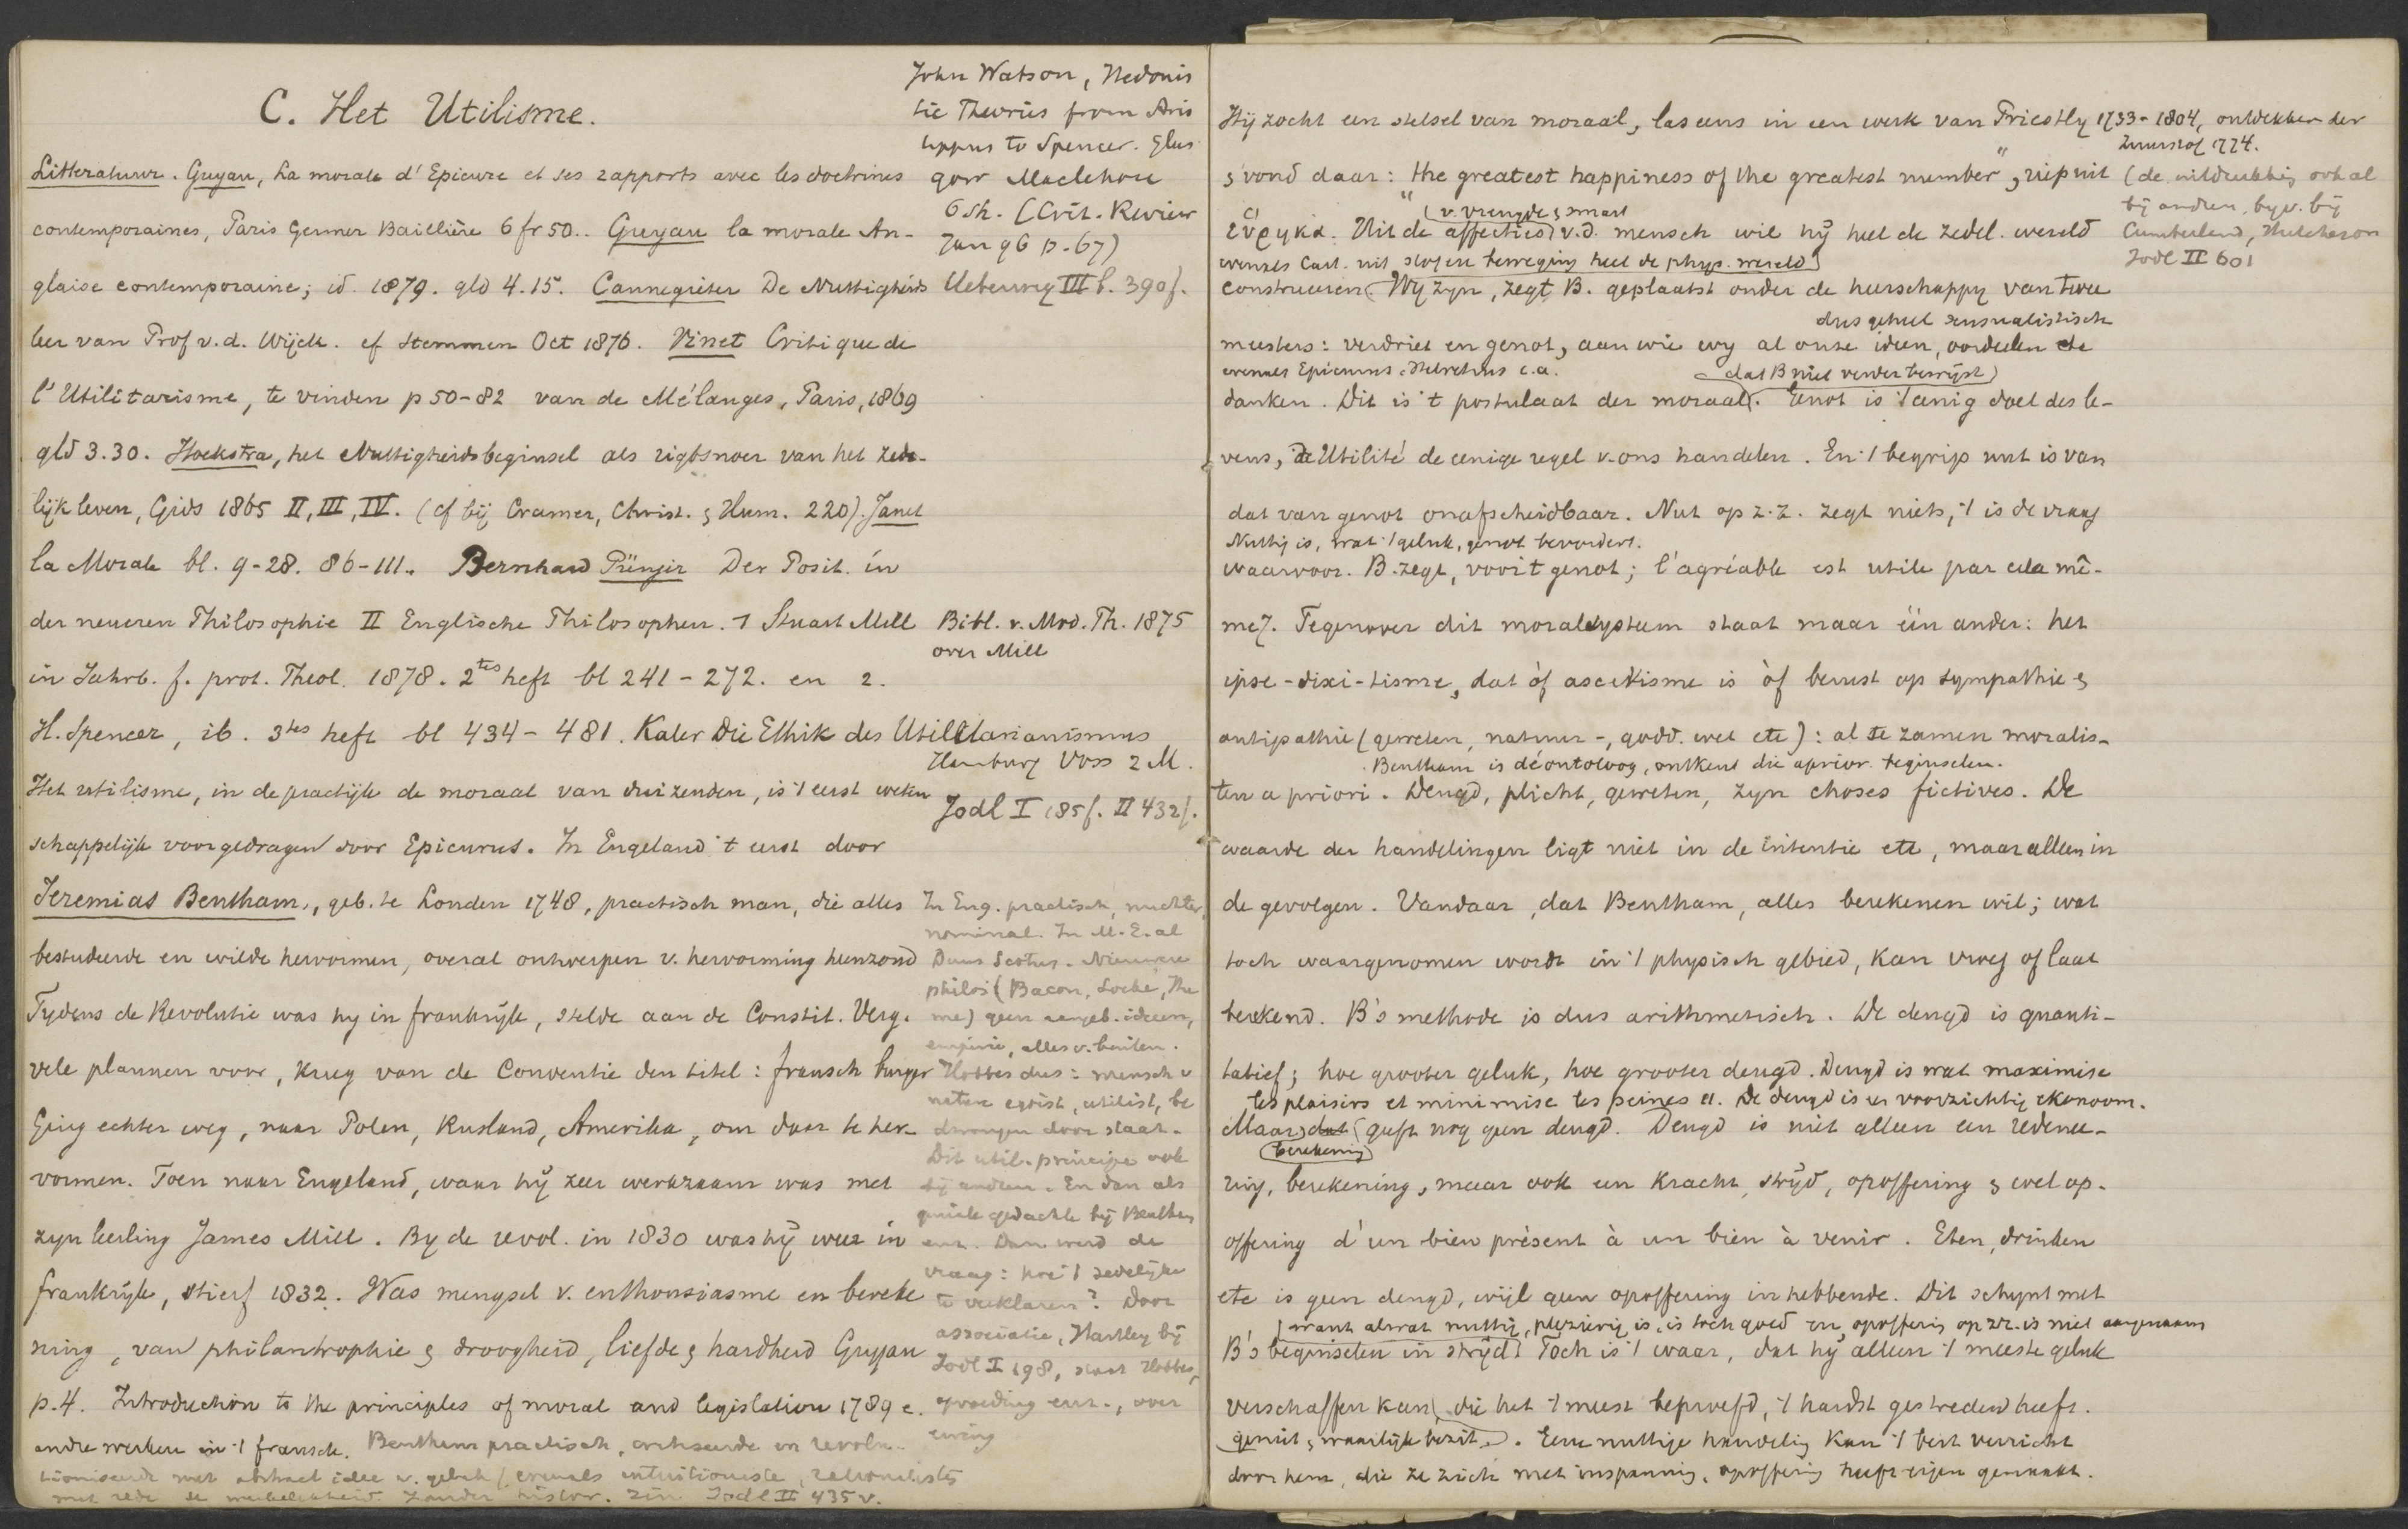 C. Het Utilisme.
Litteratuur. Guyau, La morale d'Epicure et ses rapports avec les doctrines
contemporaines, Paris Germer Baillière 6 fr 50.. Guyau la morale An-
glaise contemporaine; id. 1879. gld 4.15. Cannegieter De Nuttigheids
leer van Prof v.d. Wijck. cf Stemmen Oct 1876. Vinet Critique de
l'Utilitarisme, te vinden p 50-82 van de Mélanges, Paris, 1869
gld 3.30. Hoekstra, het Nuttigheidsbeginsel als rigtsnoer van het zede-
lijk leven, Gids 1865 II, III, IV. (cf bij Cramer, Christ. & Hum. 220). Janet
la Morale bl. 9-28. 86-111. Bernhard Pünjer Der Posit. in
der neueren Philosophie II Englische Philosophen. 1 Stuart Mill
in Jahrb. f. prot. Theol. 1878. 2tes heft bl 241-272. en 2.
H. Spencer, ib. 3tes heft bl 434-481. Kaler Die Ethik des Utilitarianismus
Hamburg Voss 2 M.
Het utilisme, in de practijk de moraal van duizenden, is 't eerst weten
schappelijk voorgedragen door Epicurus. In Engeland 't eerst door
Jeremias Bentham, geb. te Londen 1748, practisch man, die alles
bestudeerde en wilde hervormen, overal ontwerpen v. hervorming heenzond
Tydens de Revolutie was hy in frankrijk, stelde aan de Constit. Verg.
vele plannen voor, kreeg van de Conventie den titel: fransch burger
Ging echter weg, naar Polen, Rusland, Amerika, om daar te her-
vormen. Toen naar Engeland, waar hij zeer werkzaam was met
zyn leerling James Mill. By de revol. in 1830 was hij weer in
frankrijk, stierf 1832. Was mengsel v. enthousiasme en bereke
ning, van philantrophie & droogheid, liefde & hardheid Guyau
p. 4. Introduction to the principles of moral and legislation 1789 e.
andre werken in 't fransch. Bentham practisch, critiseerde en revolu-
tioniseerde met abstract idee v. geluk (evenals intuitioneste, rationalisten
met rede zonder histor. zin Jodl II 435 v.
John Watson, Hedonis
tic Theories from Aris
tippus to Spencer. Glas
gow Maclehose
6 sh. (Crit. Review
Jan 96 p. 67)
Ueberweg III b. 390 f.
Bibl. v. Mod. Th. 1875
over Mill
Jodl I 185 f. II 432 f.
In Eng. practisch, nuchter,
nominal. In M.E. al
Duns Scotus. Nieuwere
philos (Bacon, Locke, Hu
me) geen aangeb. ideen,
empirie, alles v. buiten.
Hobbes dus: mensch v
nature egoist, utilist, be
dwongen door staat.
Dit util. principe ook
bij andren. En dan als
geniale gedachte bij Bentham
enz. Dan werd de
vraag: hoe 't zedelijke
te verklaren? Door
associatie, Hartley bij
Jodl I 198, staat Hobbes,
opvoeding enz., over
ering
Hij zocht een stelsel van moraal, las eens in een werk van Priestly 1733-1804, ontdekker der
zuurstof 1774.
& vond daar: "the greatest happiness of the greatest number", riep uit (de uitdrukking ook al
bij andren, byv. bij
Cumberland, Hutcheson
Jodl II 601
(v. vreugde & smart
εὕρηκα. Uit de affecties v.d. mensch wil hij heel de zedel. wereld
evenals Cart. uit stof en beweging heel de phys. wereld)
construeeren. Wij zyn, zegt B. geplaatst onder de heerschappy van twee
dus geheel sensualistisch
meesters: verdriet en genot, aan wie wy al onze ideen, oordeelen
evenals Epicurus, Helvetius e.a.
(dat B niet verder bewijst)
danken. Dit is 't postulaat der moraal. Genot is 't eenig doel des le-
vens, de Utilité de eenige regel v. ons handelen. En 't begrip nut is van
dat van genot onafscheidbaar. Nut op z.z. zegt niets, 't is de vraag
Nuttig is, wat 't geluk, genot bevordert.
waarvoor. B. zegt, voor 't genot; l'agréable est utile par cela mê-
me. Tegenover dit moralsysteem staat maar één ander: het
ipse-dixi-tisme, dat òf ascetisme is òf berust op sympathie &
antipathie (geweten, natuur-, godd. wet etc): al te zamen moralis-
Bentham is déontoloog, ontkent die aprior. beginselen.
ten a priori. Deugd, plicht, geweten, zyn choses fictives. De
waarde der handelingen ligt niet in de intentie etc, maar alleen in
de gevolgen. Vandaar, dat Bentham, alles berekenen wil; wat
toch waargenomen wordt in 't physisch gebied, kan vroeg of laat
berekend. B's methode is dus arithmetisch. De deugd is quanti-
tatief; hoe grooter geluk, hoe grooter deugd. Deugd is wat maximise
les plaisirs et minimise les peines. De deugd is een voorzichtig ekonoom.
Maar dat geeft nog geen deugd. Deugd is niet alleen een redenee-
(berekening)
ring, berekening, maar ook een kracht, strijd, opoffering & wel op-
offering d'un bien présent à un bien à venir. Eten, drinken
etc is geen deugd, wijl geen opoffering inhebbende. Dit schynt met
(want alwat nuttig, plezierig is, is toch goed en opoffering op zz. is niet aangenaam
B's beginselen in strijd. Toch is 't waar, dat hij alleen 't meeste geluk
verschaffen kan, die het 't meest beproefd, 't hardst gestreden heeft.
geniet & waarlijk bezit. Eene nuttige handeling kan 't best verricht
door hem, die ze zich met inspanning, opoffering heeft eigen gemaakt.